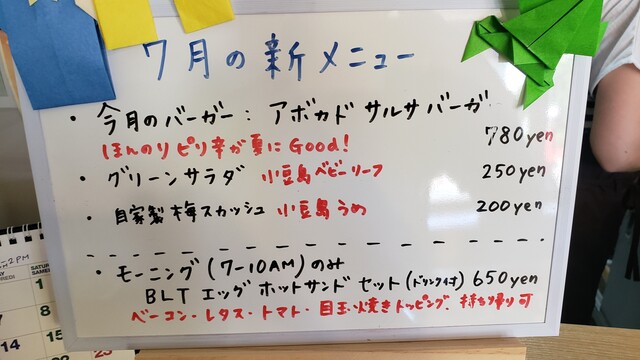 7月の新メニュー
・今月のバーガー：アボカドサルサバーガ
ほんのりピリ辛が夏にGood!
780yen
・グリーンサラダ 小豆島ベビーリーフ 250yen
・自家製梅スカッシュ 小豆島うめ 200yen
・モーニング(7-10AM)のみ
BLTエッグホットサンドセット(ドリンク付) 650yen
ベーコン・レタス・トマト・目玉焼きトッピング、持ち帰り可
2PM
1
7
8
14
15